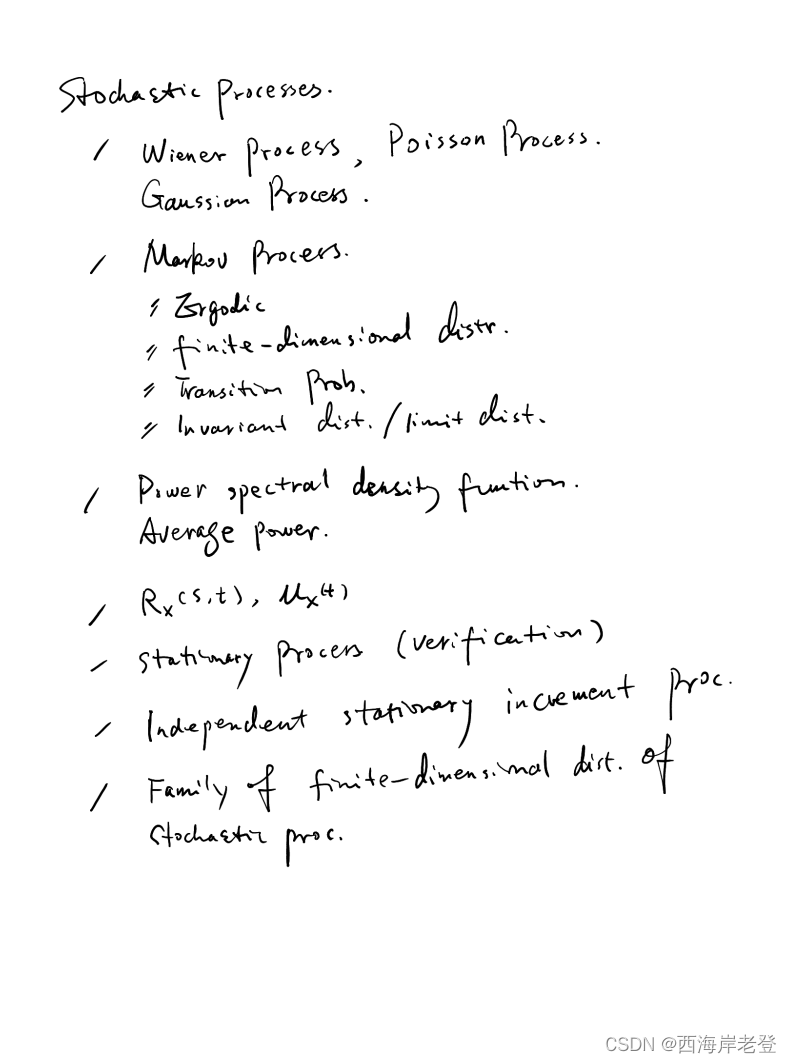 Stochastic Processes.
/ Wiener Process, Poisson Process.
Gaussian Process.
/ Markov Process.
〃 Ergodic
〃 finite-dimensional distr.
〃 Transition Prob.
〃 Invariant dist. / limit dist.
/ Power spectral density funtion.
Average power.
/ Rx(s,t), μx(t)
/ Stationary Process (verification)
/ Independent stationary increment proc.
/ Family of finite-dimensional dist. of
stochastic proc.
CSDN @西海岸老登